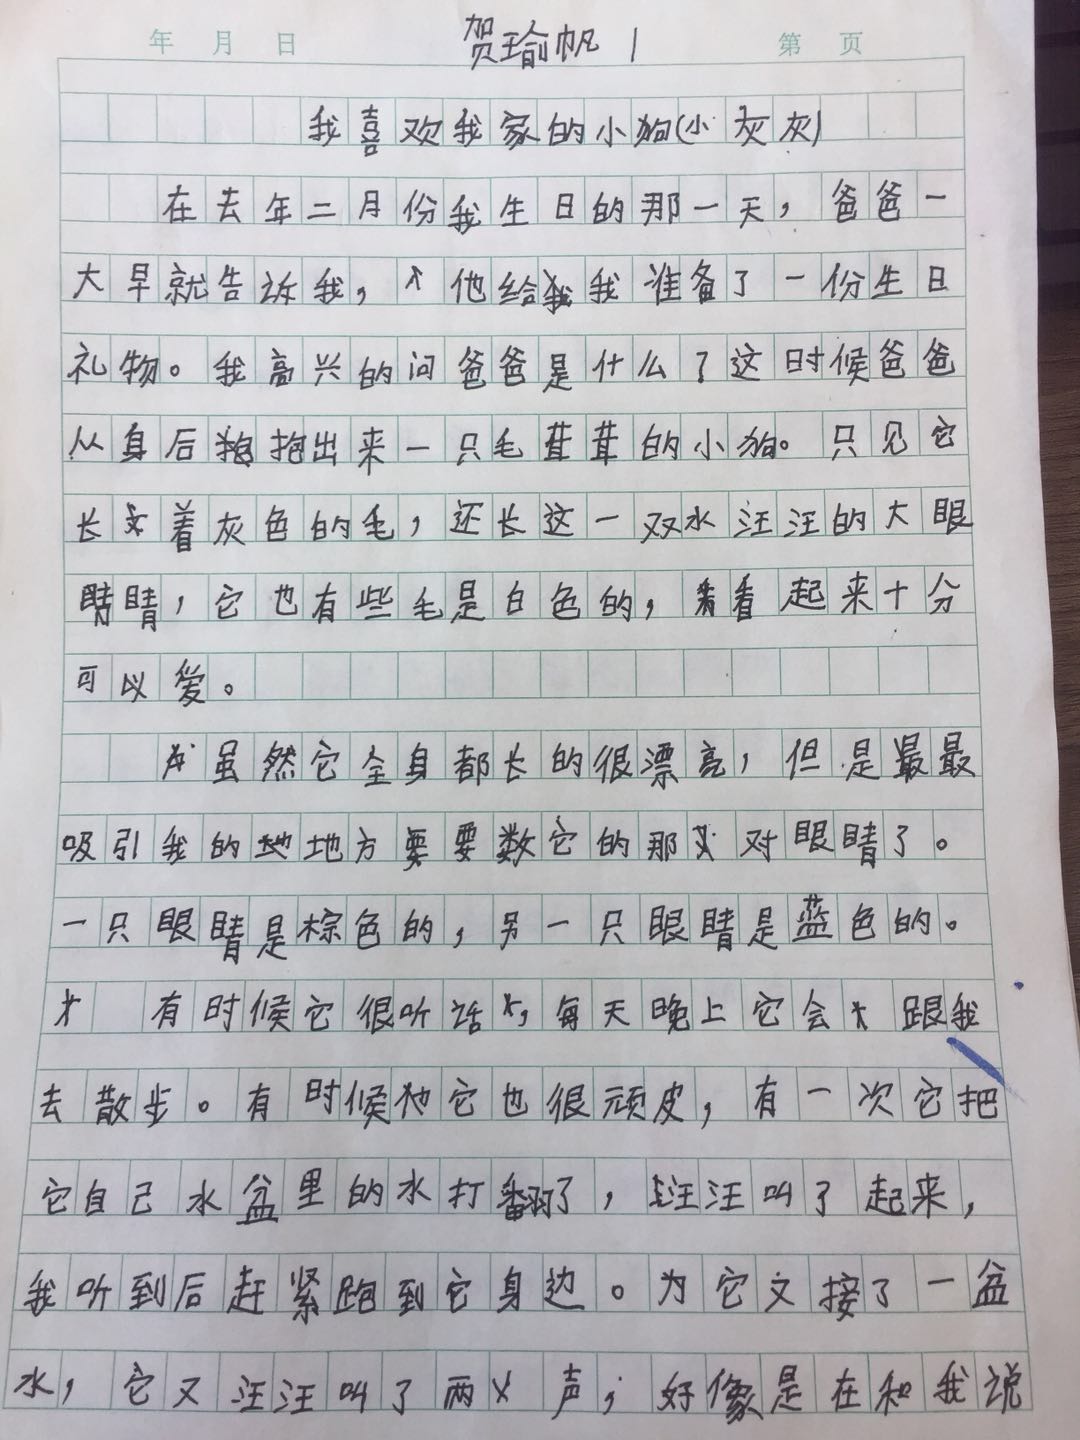 年 月 日 贺瑜帆 1 第 页
我喜欢我家的小狗(小灰灰)
在去年二月份我生日的那一天，爸爸一
大早就告诉我，他给我准备了一份生日
礼物。我高兴的问爸爸是什么？这时候爸爸
从身后抱出来一只毛茸茸的小狗。只见它
长着灰色的毛，还长这一双水汪汪的大眼
睛，它也有些毛是白色的，看起来十分
可以爱。
虽然它全身都长的很漂亮，但是最
吸引我的地方要数它的那对眼睛了。
一只眼睛是棕色的，另一只眼睛是蓝色的。
有时候它很听话，每天晚上它会跟我
去散步。有时候它也很顽皮，有一次它把
它自己水盆里的水打翻了，汪汪叫了起来，
我听到后赶紧跑到它身边。为它又接了一盆
水，它又汪汪叫了两声，好像是在和我说